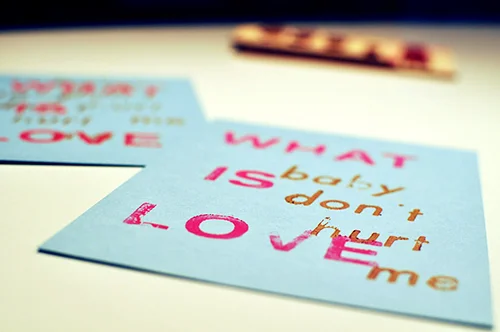 WHAT
IS baby
don't
LOVE hurt
me
WHAT
hurt me
LOVE